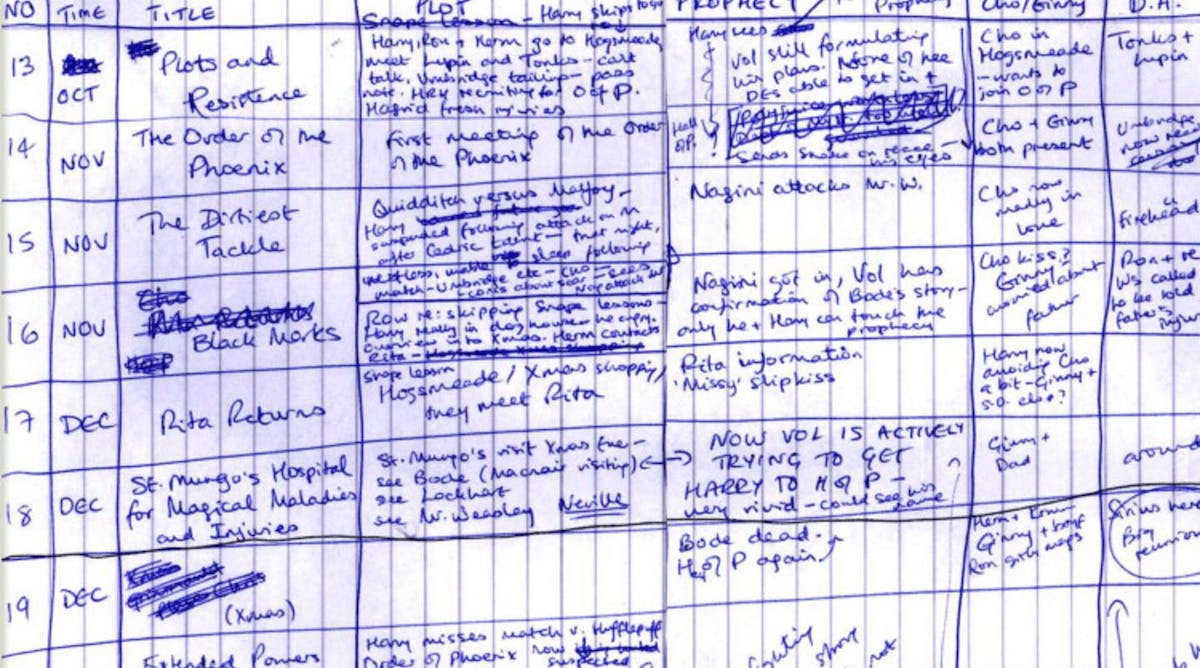 NO TIME TITLE PLOT PROPHECY Cho/Ginny D.A.
Snape lesson - Harry skips
13
OCT
Plots and
Resistence
Harry, Ron + Herm go to Hogsmeade,
meet Lupin and Tonks - can't
talk, Umbridge tailing - pass
note. HRH recruiting for O of P.
Hagrid fresh injuries
Harry sees
Vol still formulating
his plans. None of the
DEs able to get in +
Cho in
Hogsmeade
- wants to
join O of P
Tonks +
Lupin
14
NOV
The Order of the
Phoenix
First meeting of the Order
of the Phoenix
Hall
of P.
?
Sends snake on recce -
his eyes
Cho + Ginny
both present
Umbridge
now
15
NOV
The Dirtiest
Tackle
Quidditch versus Malfoy -
Harry
suspended following attack on
after Cedric taunt - that night,
restless, unable sleep following
match - Umbridge etc - Cho - sees
attack
Nagini attacks Mr. W.
Cho now
madly in
love
Firehead
16
NOV
Black Marks
Row re: skipping Snape lessons -
Harry really in doghouse
into Xmas. Herm contacts
Rita -
Nagini got in, Vol has
confirmation of Bode's story -
only he + Harry can touch the
prophecy
Cho kiss?
Ginny
worried about
father
Ron + re
Ws called
to be told
father's
injur
17
DEC
Rita Returns
Snape lesson
Hogsmeade / Xmas shopping/
they meet Rita
Rita information
'Missy' skip kiss
Harry now
avoiding Cho
a bit - Ginny +
s.o. else?
18
DEC
St. Mungo's Hospital
for Magical Maladies
and Injuries
St. Mungo's visit Xmas Eve -
see Bode (Macnair visiting)
see Lockhart
see Mr. Weasley Neville
NOW VOL IS ACTIVELY
TRYING TO GET
HARRY TO H of P -
very vivid - could see his
Ginny +
Dad
around
19
DEC
(Xmas)
Bode dead.
H of P again
Herm + Krum -
Ginny + boyf
Ron
Sirius here
Big
reunion
Extended Powers
Harry misses match v. Hufflepuff
Order of Phoenix now
suspected